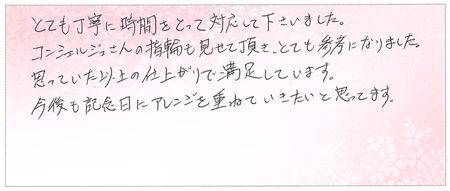 とても丁寧に時間をとって対応して下さいました。
コンシェルジュさんの指輪も見せて頂き、とても参考になりました。
思っていた以上の仕上がりで満足しています。
今後も記念日にアレンジを重ねていきたいと思ってます。